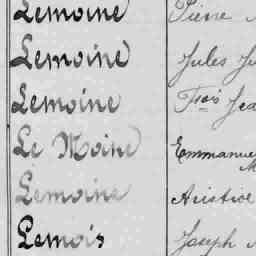 Lemoine Pierre
Lemoine Jules Ju
Lemoine Fçois Jea
Le Moine Emmanue
M
Lemoine Aristide
Lemois Joseph